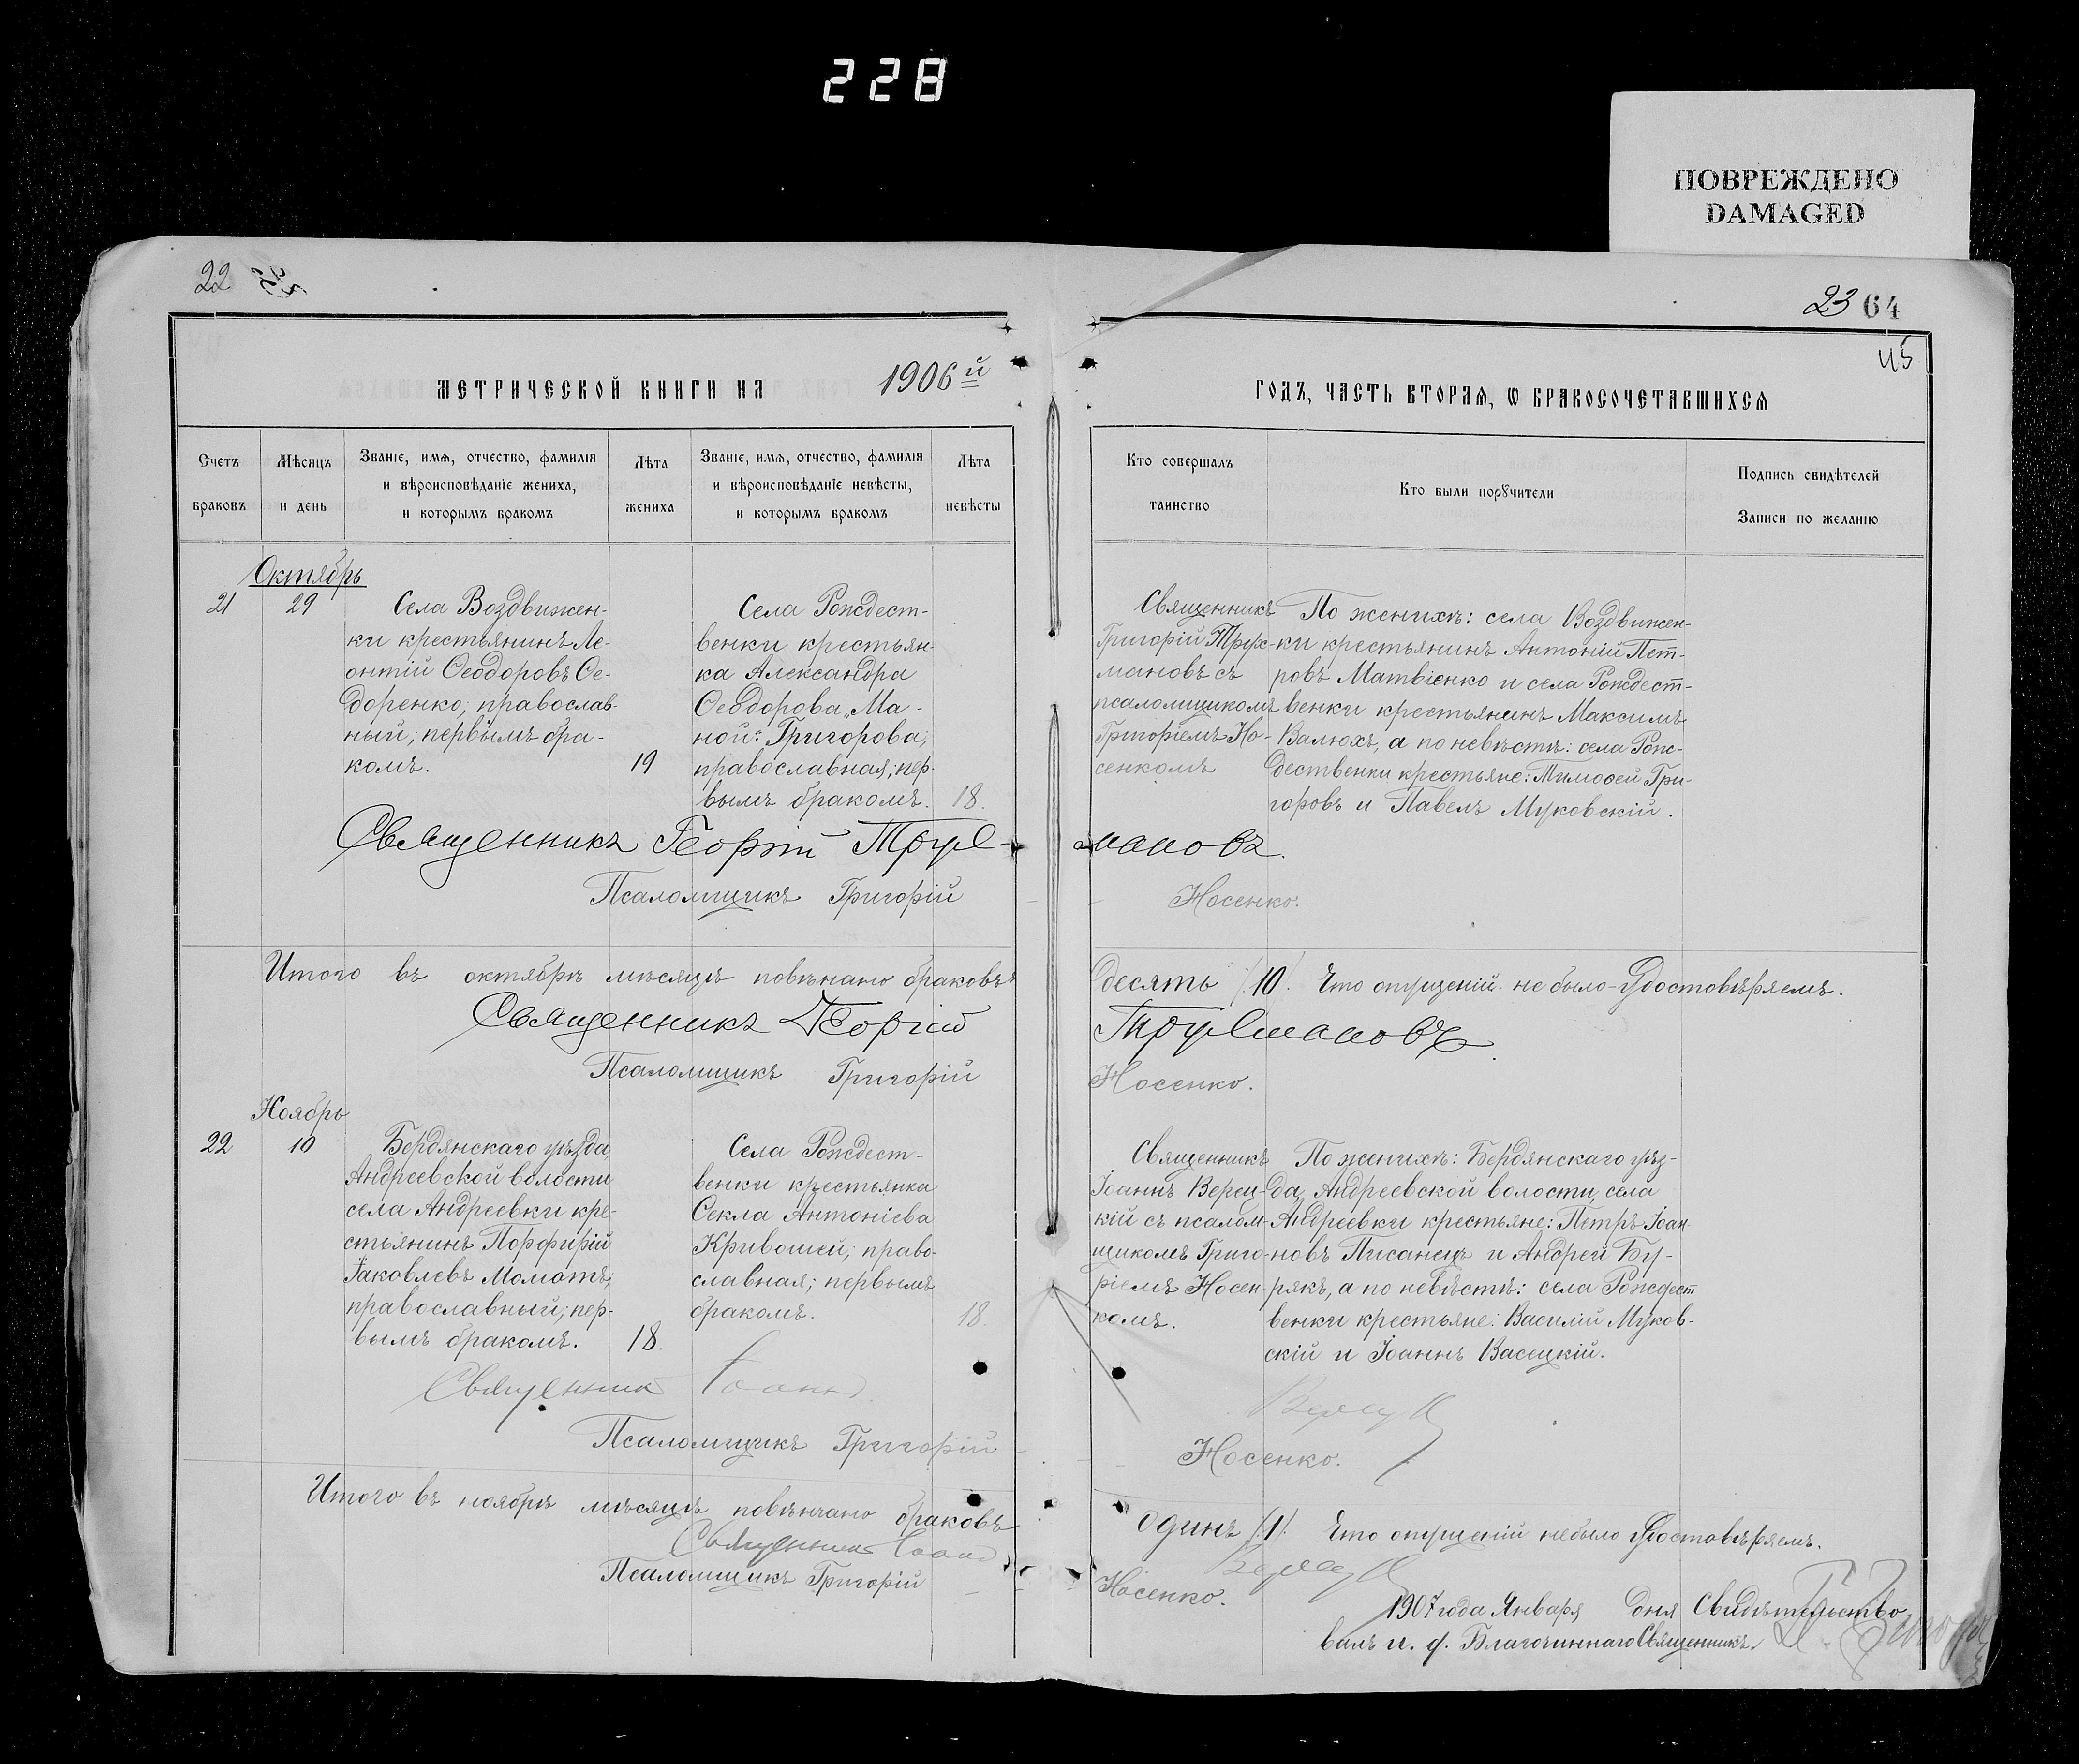 228
ПОВРЕЖДЕНО
DAMAGED
22
23 64
45
МЕТРИЧЕСКОЙ КНИГИ НА 1906й
ГОДЪ, ЧАСТЬ ВТОРАЯ, Ѡ БРАКОСОЧЕТАВШИХСЯ
Счетъ
браковъ
Мѣсяцъ
и день
Званіе, имя, отчество, фамилія
и вѣроисповѣданіе жениха,
и которымъ бракомъ
Лѣта
жениха
Званіе, имя, отчество, фамилія
и вѣроисповѣданіе невѣсты,
и которымъ бракомъ
Лѣта
невѣсты
Кто совершалъ
таинство
Кто были порꙋчители
Подпись свидѣтелей
Записи по желанію
Октябрь
21
29
Села Воздвижен-
ки крестьянинъ Ле-
онтій Ѳеодоровъ Ѳе-
доренко; православ-
ный; первымъ бра-
комъ.
19
Села Рождест-
венки крестьян-
ка Александра
Ѳеодорова „Ма-
ной" Григорова;
православная; пер-
вымъ бракомъ.
18.
Священникъ
Григорій Трух-
мановъ съ
псаломщикомъ
Григоріемъ Но-
сенкомъ
По женихѣ: села Воздвижен-
ки крестьянинъ Антоній Пет-
ровъ Матвіенко и села Рождест-
венки крестьянинъ Максимъ
Валюхъ, а по невѣстѣ: села Рож-
дественки крестьяне: Тимоѳей Гри-
горовъ и Павелъ Муковскій.
Священникъ Георгій Трух-
мановъ.
Псаломщикъ Григорій
Носенко.
Итого въ октябрѣ мѣсяцѣ повѣнчано браковъ
десять /10/. Что опущеній не было-Удостовѣряемъ.
Священникъ Георгій
Трухмановъ
Псаломщикъ Григорій
Носенко.
Ноябрь
22
10
Бердянскаго уѣзда
Андреевской волости
села Андреевки кре-
стьянинъ Порфирій
Іаковлевъ Момотъ;
православный; пер-
вымъ бракомъ.
18.
Села Рождест-
венки крестьянка
Ѳекла Антоніева
Кривошей; право-
славная; первымъ
бракомъ.
18.
Священникъ
Іоаннъ Верец-
кій съ псалом-
щикомъ Григо-
ріемъ Носен-
комъ.
По женихѣ: Бердянскаго уѣз-
да, Андреевской волости, села
Андреевки крестьяне: Петръ Іоан-
новъ Писанецъ и Андрей Бу-
рякъ, а по невѣстѣ: села Рождест
венки крестьяне: Василій Муков-
скій и Іоаннъ Васецкій.
Священникъ Іоаннъ
Псаломщикъ Григорій
Носенко.
Итого въ ноябрѣ мѣсяцѣ повѣнчано браковъ
одинъ /1/. Что опущеній не было Удостовѣряемъ.
Священникъ Іоаннъ
Псаломщикъ Григорій
Носенко.
1907 года Января дня Свидѣтельство
валъ и. д. Благочиннаго Священникъ